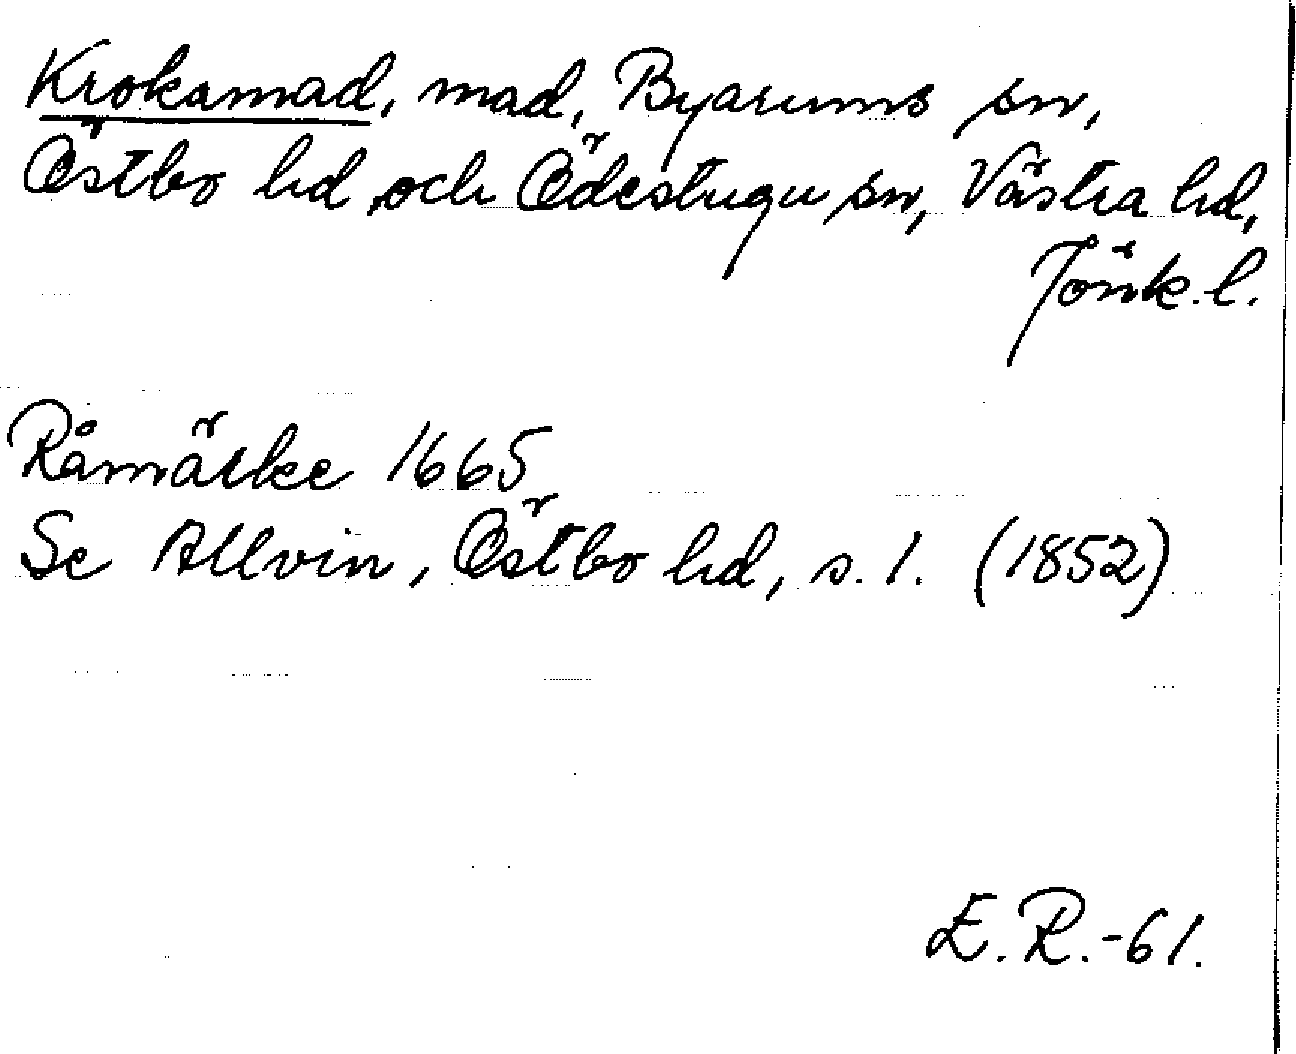 Krokamad, mad, Byarums sn,
Östbo hd och Ödestugu sn, Västra hd,
Jönk. l.
Råmärke 1665
Se Allvin, Östbo hd, s. 1. (1852)
E. R. -61.